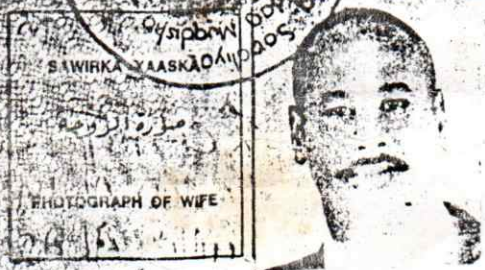 Muqdisho
SAWIRKA XAASKA
صورة الزوجة
PHOTOGRAPH OF WIFE